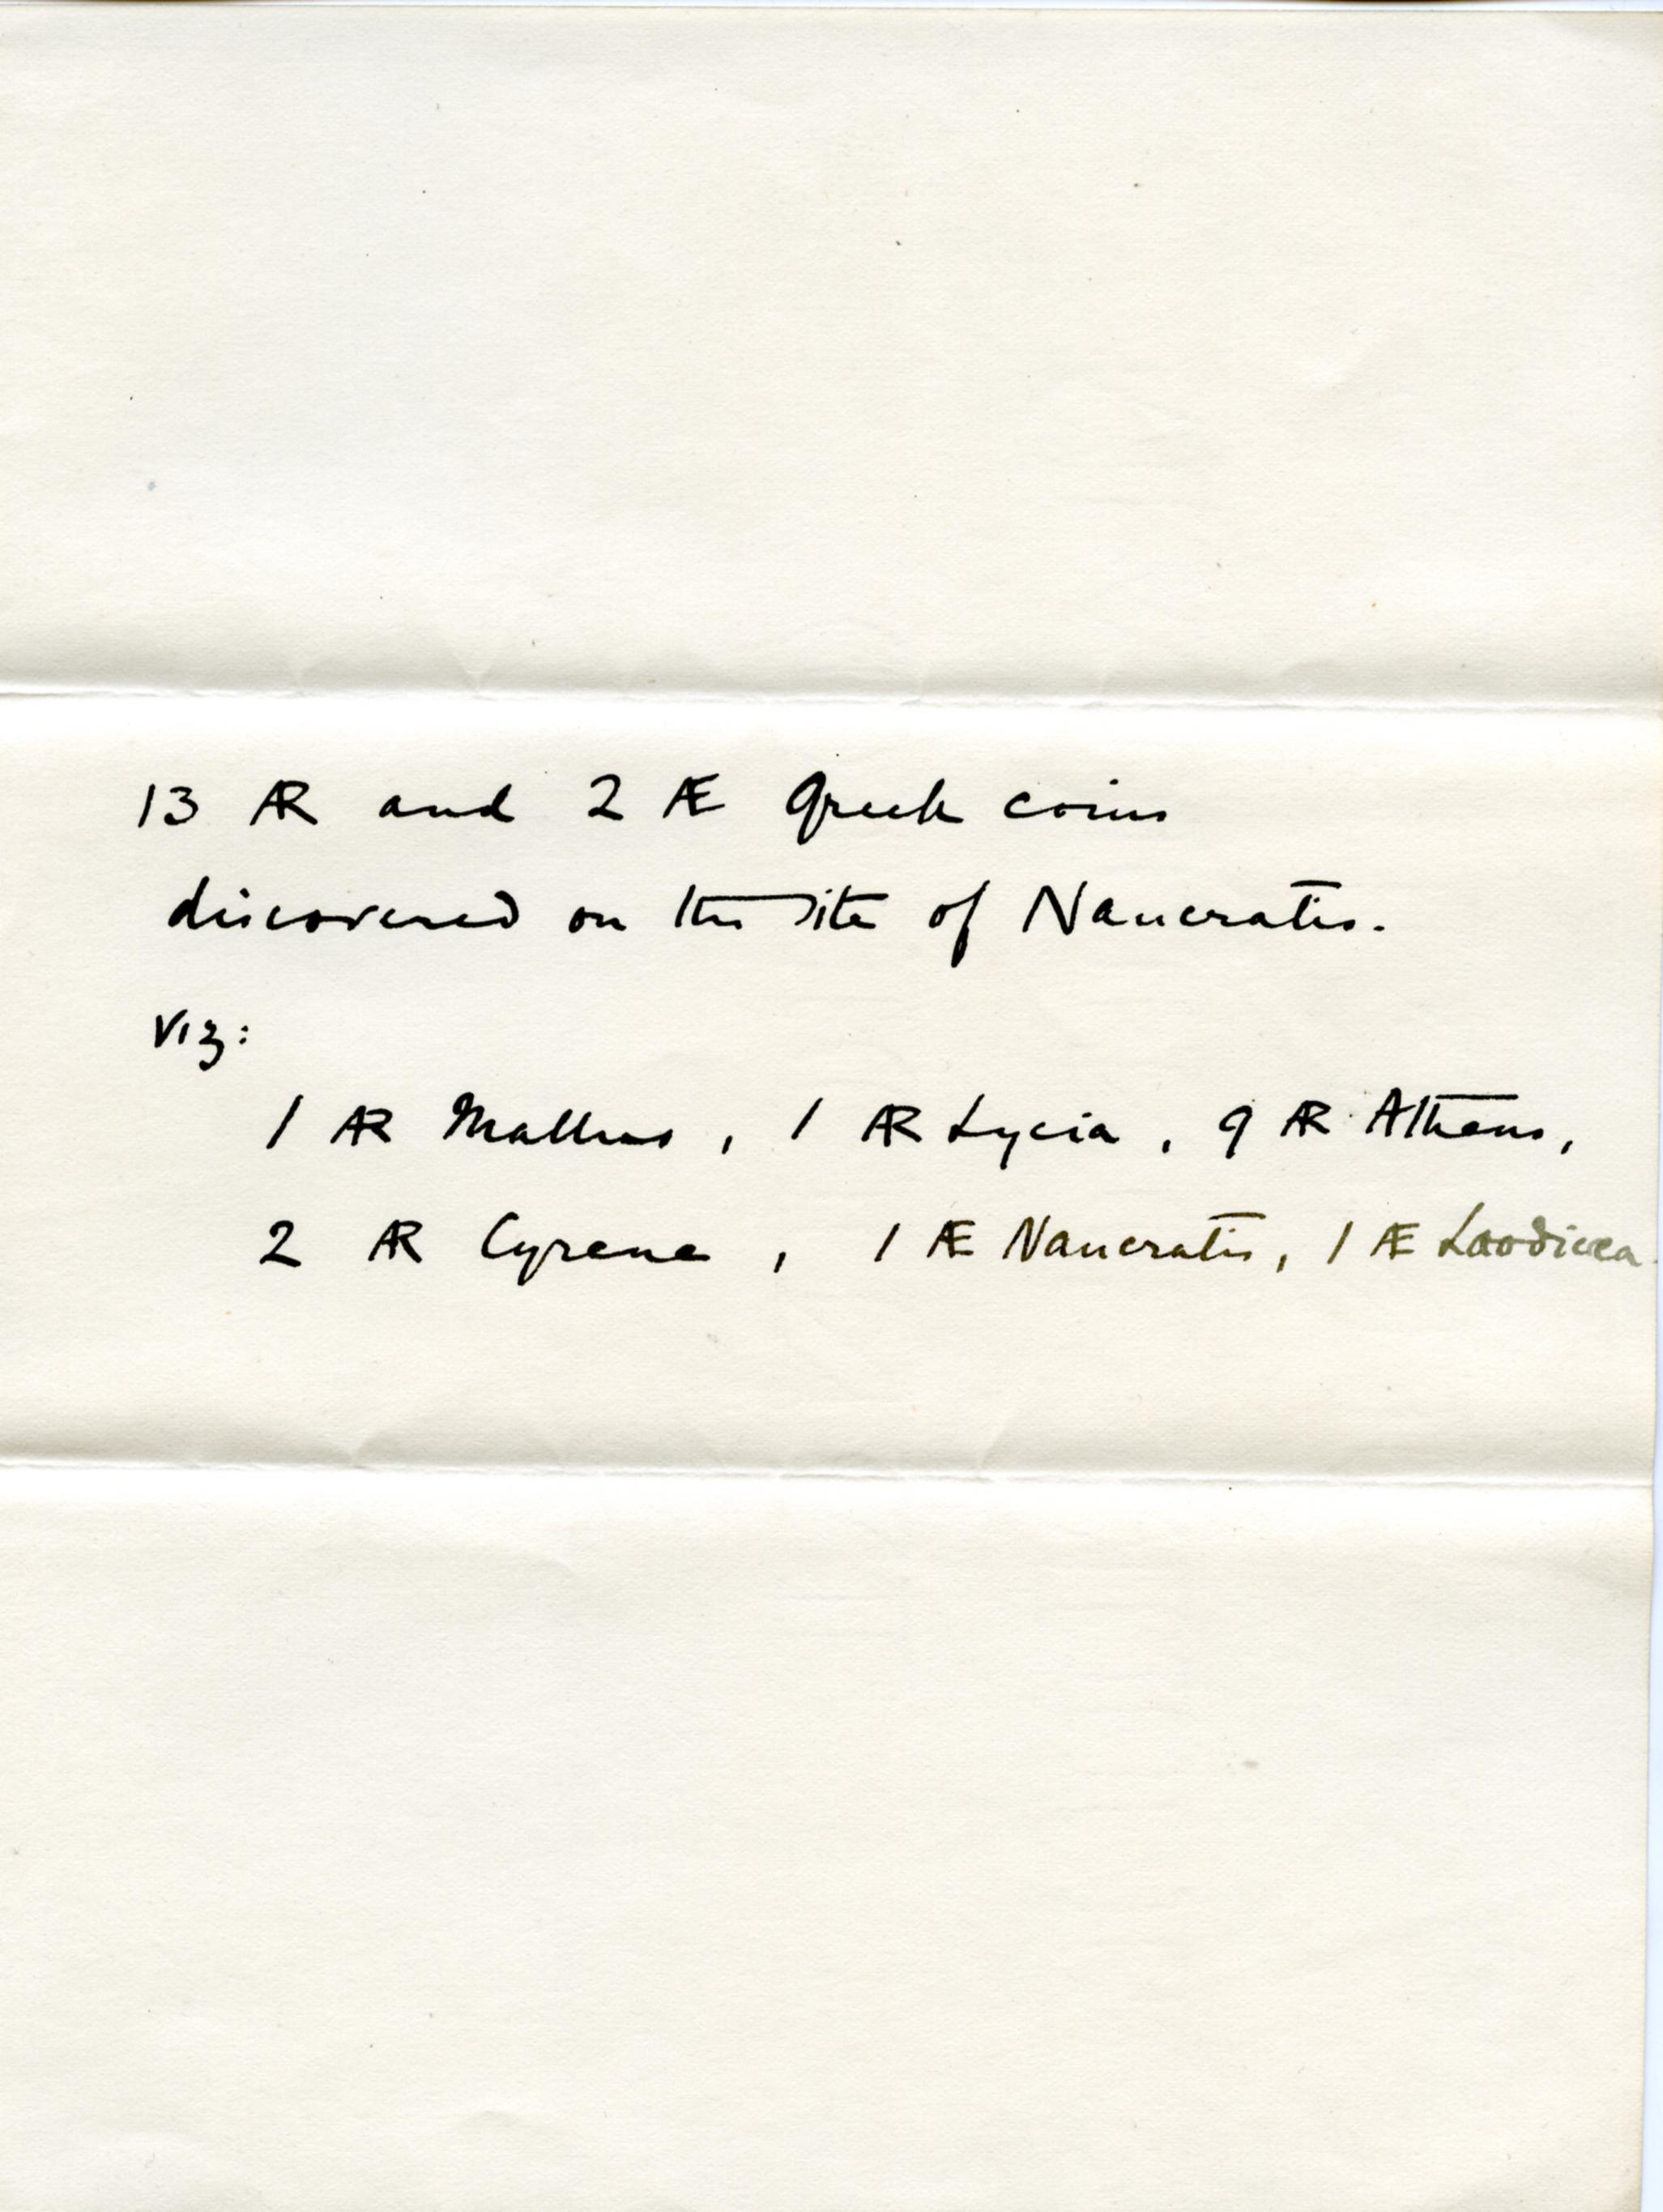 13 Æ and 2 Æ Greek coins
discovered on the site of Naucratis.
viz:
1 AR Mallus, 1 AR Lycia, 9 AR Athens,
2 AR Cyrene, 1 Æ Naucratis, 1 Æ Laodicea.